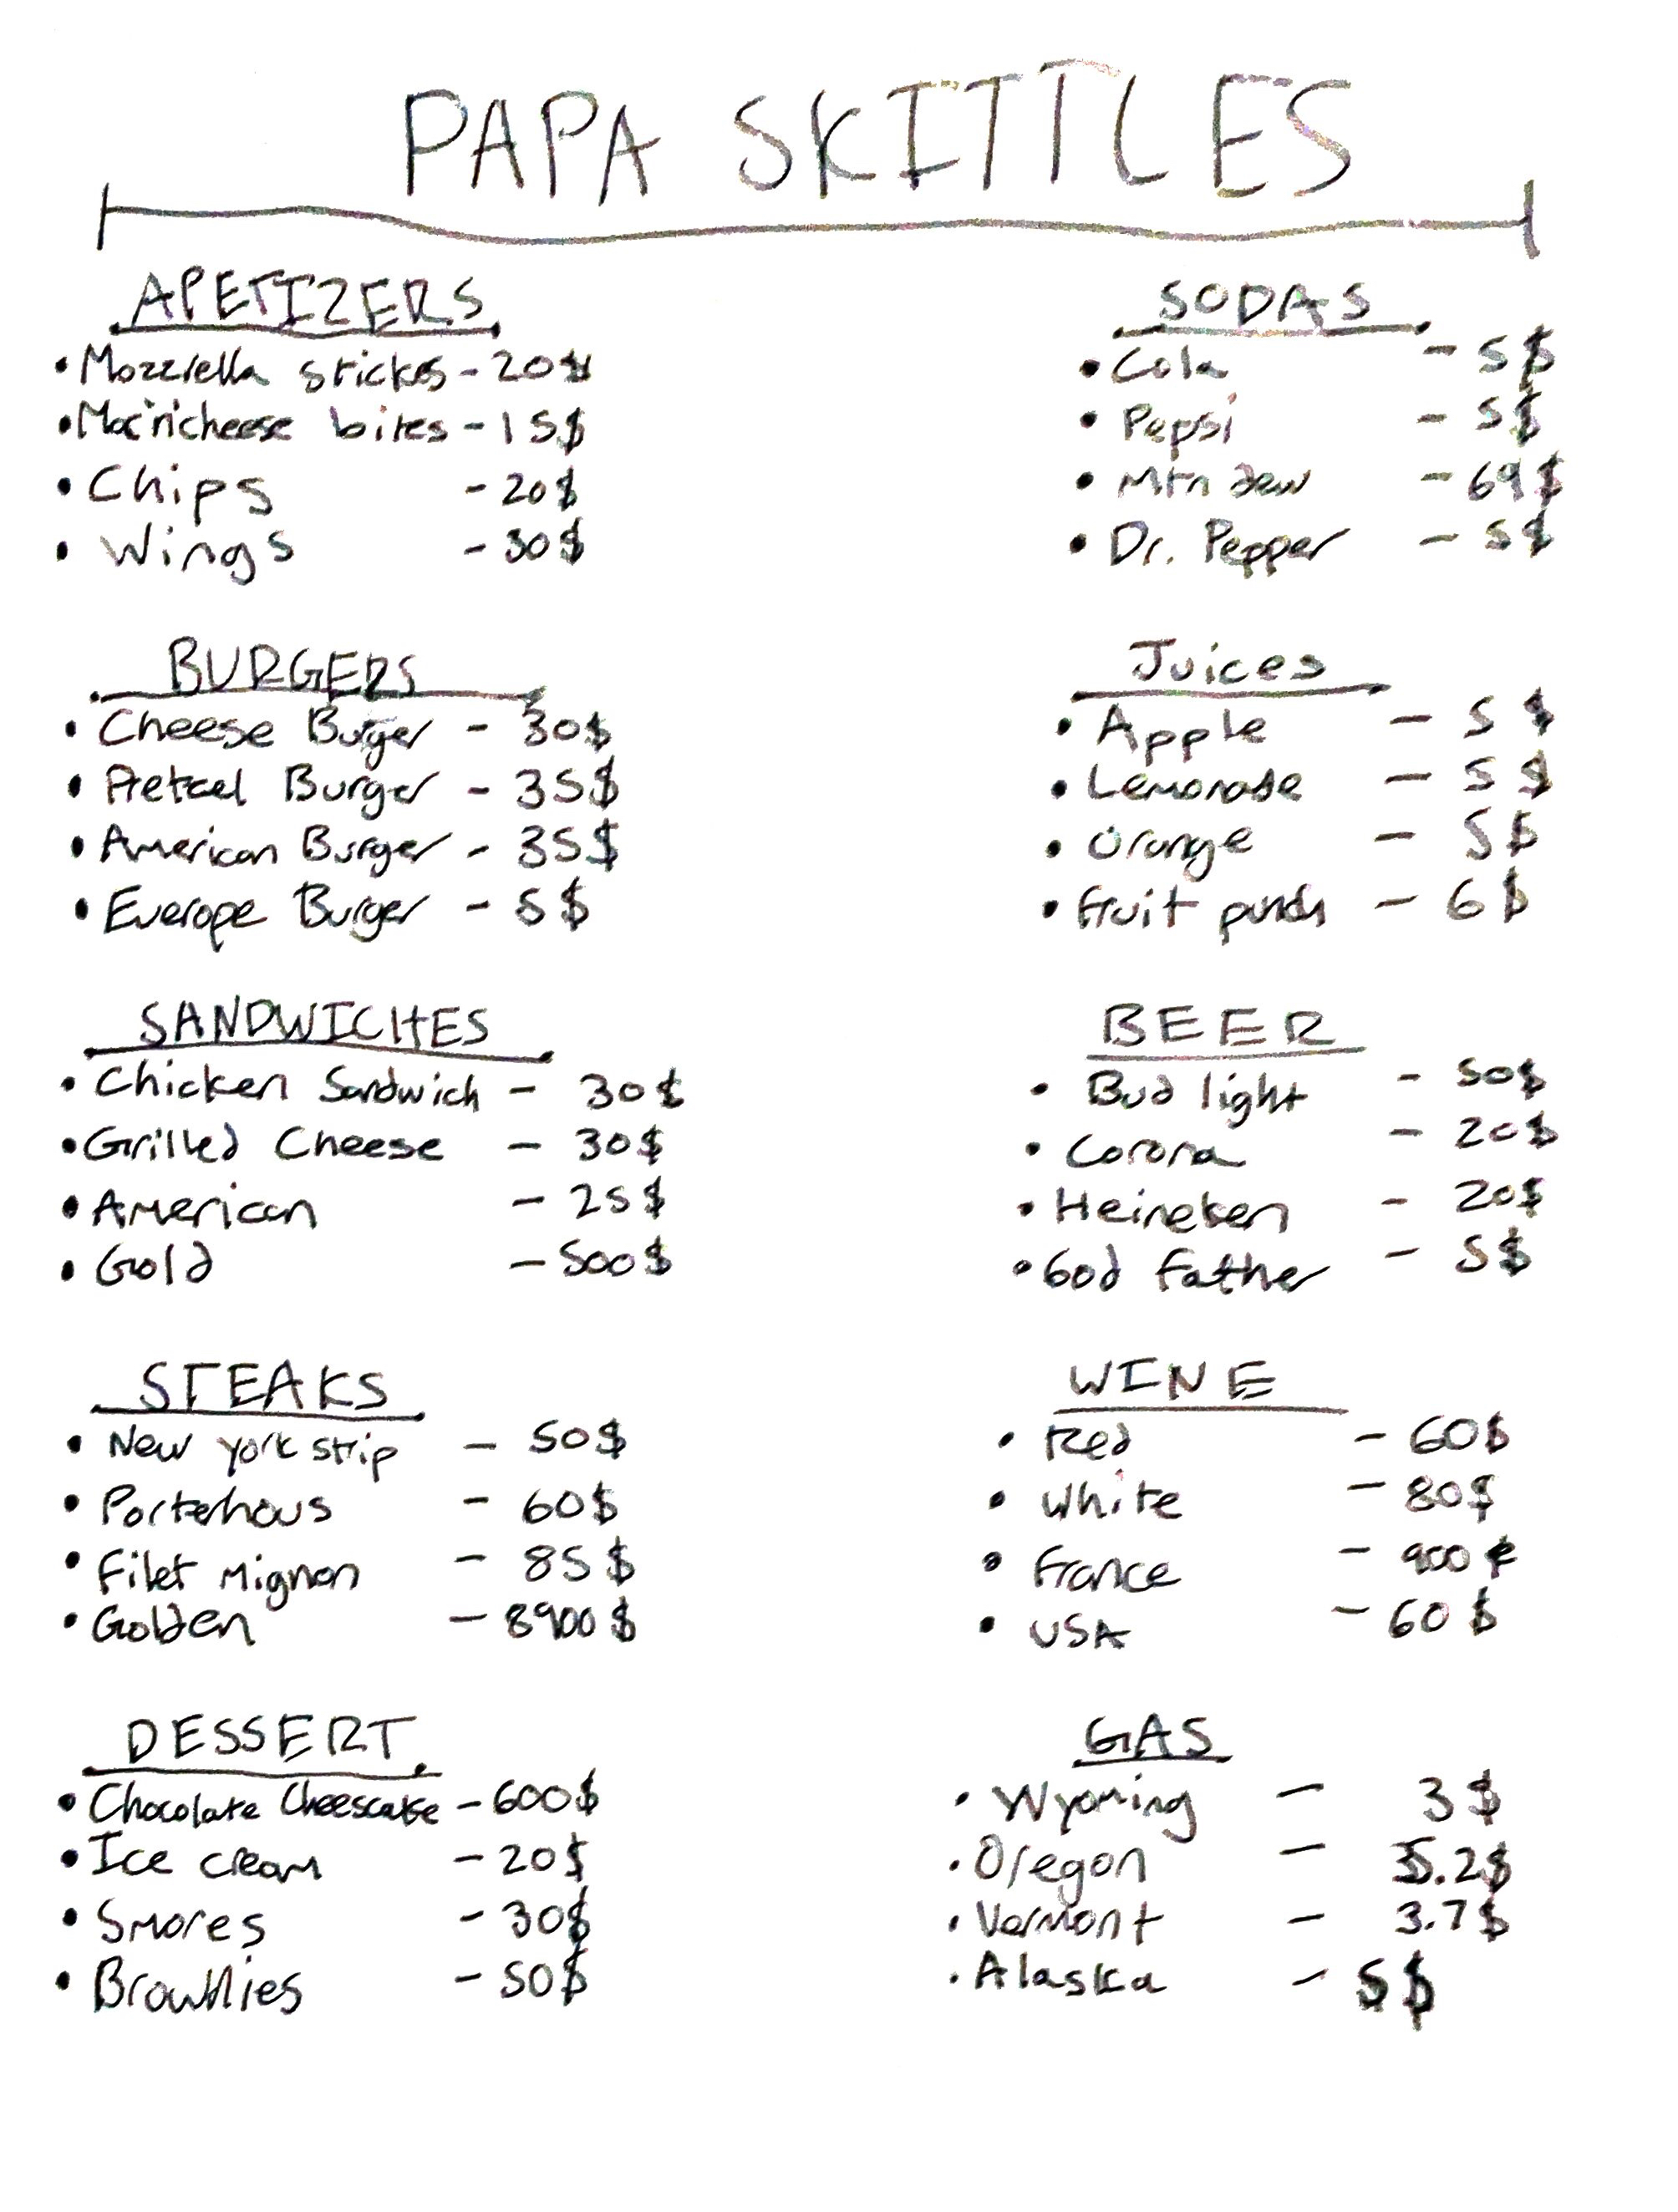 PAPA SKITTLES
APETIZERS
• Mozzrella stickes - 20$
• Mac'n'cheese bites - 15$
• Chips - 20$
• Wings - 30$
BURGERS
• Cheese Burger - 30$
• Pretzel Burger - 35$
• American Burger - 35$
• Euerope Burger - 5$
SANDWICHES
• Chicken Sandwich - 30$
• Grilled Cheese - 30$
• American - 25$
• Gold - 500$
STEAKS
• New york strip - 50$
• Porterhous - 60$
• Filet Mignon - 85$
• Golden - 8900$
DESSERT
• Chocolate Cheescake - 600$
• Ice cream - 20$
• Smores - 30$
• Brownies - 50$
SODAS
• Cola - 5$
• Pepsi - 5$
• Mtn dew - 69$
• Dr. Pepper - 5$
Juices
• Apple - 5$
• Lemonade - 5$
• Orange - 5$
• Fruit punch - 6$
BEER
• Bud light - 50$
• Corona - 20$
• Heineken - 20$
• God father - 5$
WINE
• Red - 60$
• White - 80$
• France - 900$
• USA - 60$
GAS
• Wyoming - 3$
• Oregon - 5.2$
• Vermont - 3.7$
• Alaska - 5$